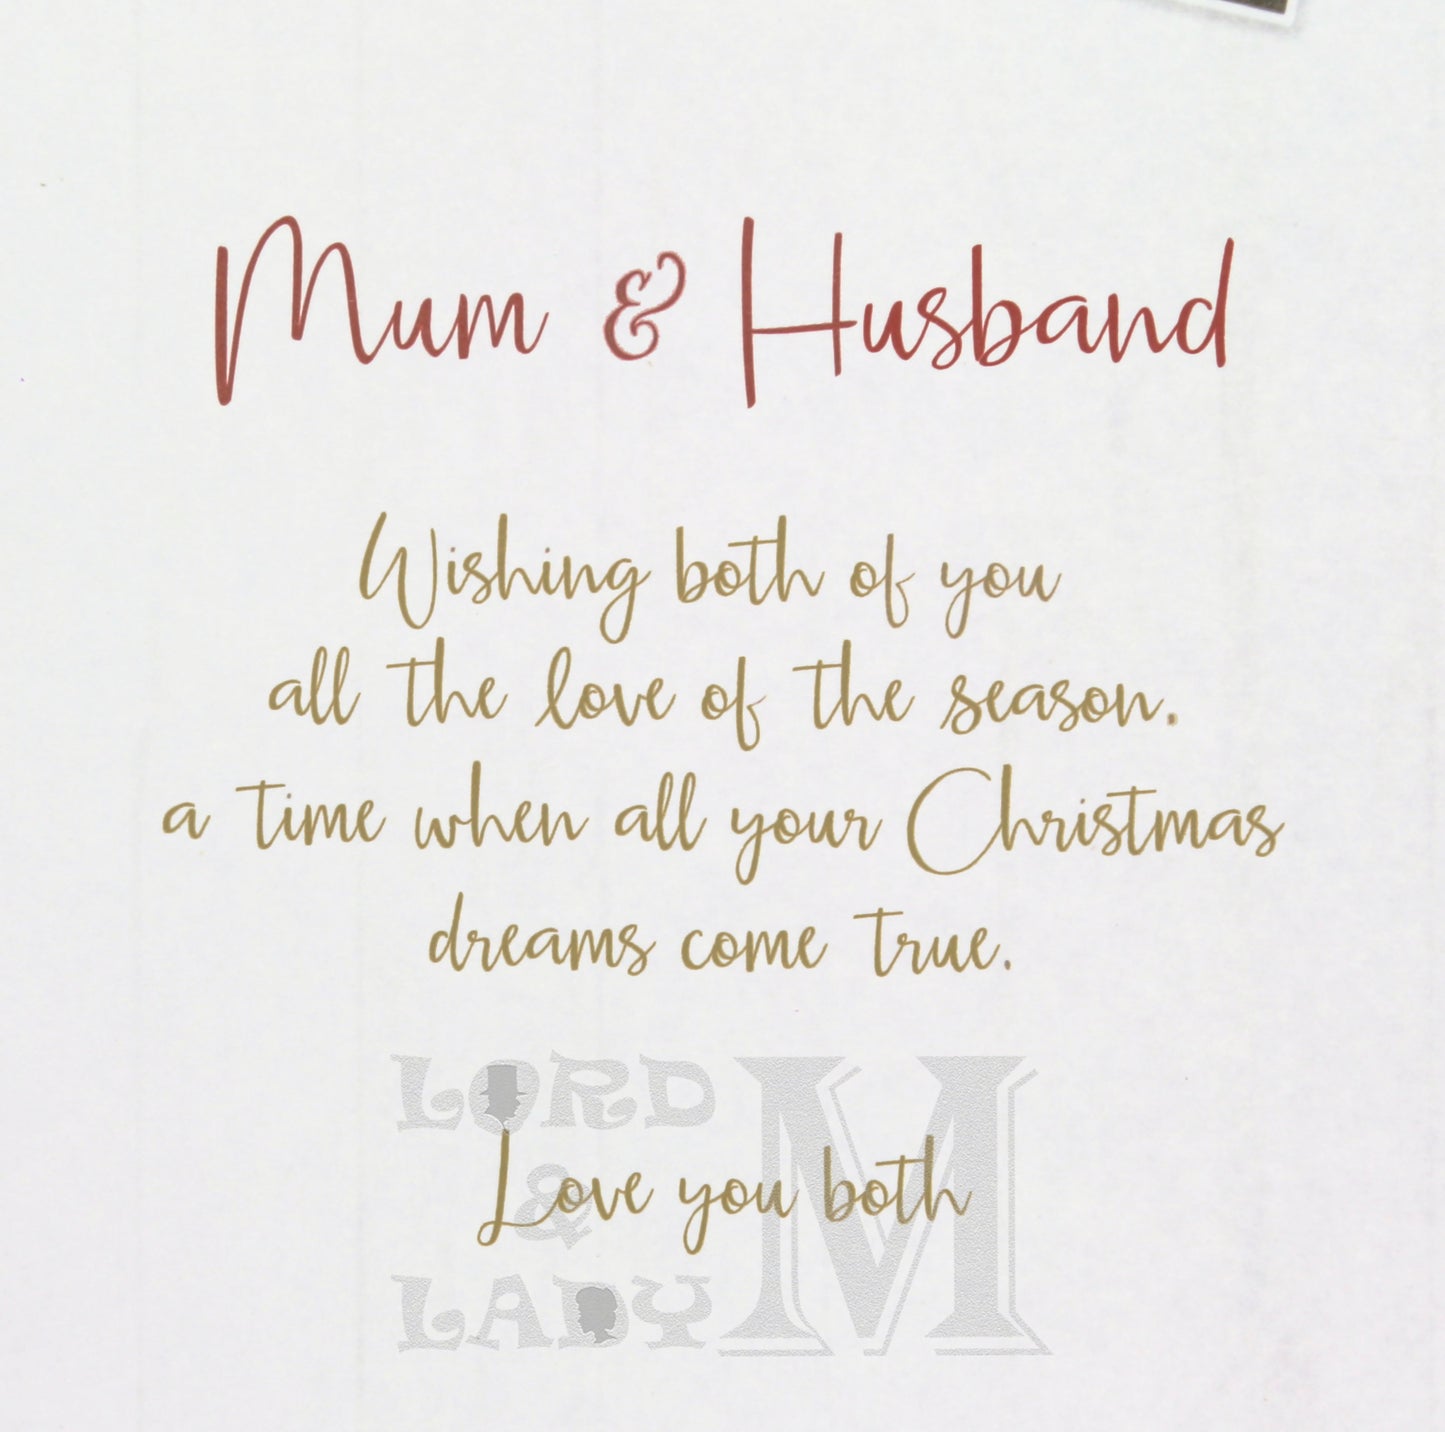 Mum & Husband
Wishing both of you
all the love of the season.
a time when all your Christmas
dreams come true.
LORD
&
LADY
M
Love you both